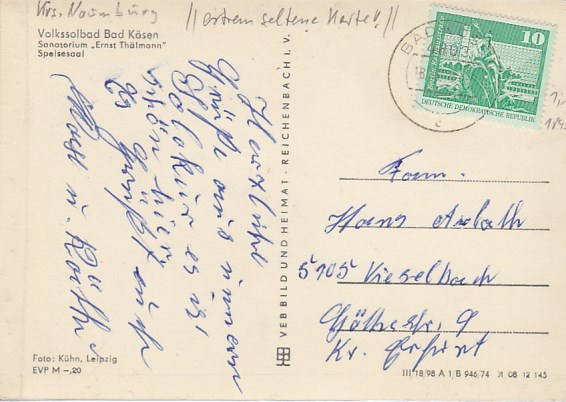 Krs. Naumburg //extrem seltene Karte!!//
Volkssolbad Bad Kösen
Sanatorium „Ernst Thälmann"
Speisesaal
Herzliche
Grüße aus unserer
es ist
schön hier
Es grüßt euch
u. Käthe
Foto: Kühn, Leipzig
EVP M –,20
VEB BILD UND HEIMAT · REICHENBACH I. V.
BAD
10
DEUTSCHE DEMOKRATISCHE REPUBLIK
Fam.
Hans
5105 Vieselbach
Göthestr. 9
Kr. Erfurt
III 18 98 A 1/B 946/74 01 08 12 145